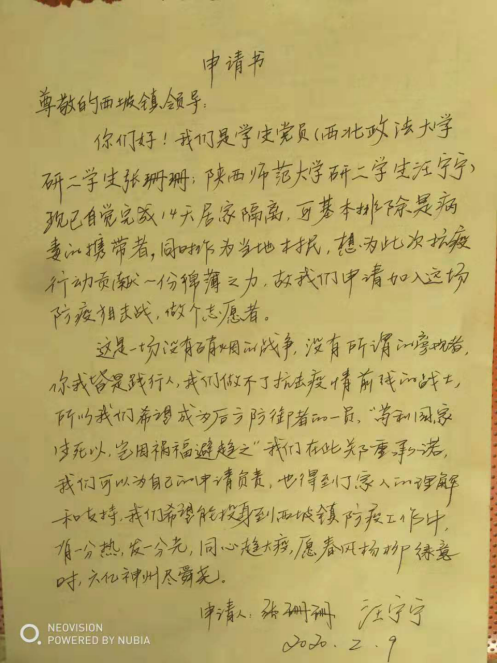 申请书
尊敬的西坡镇领导：
你们好！我们是学生党员（西北政法大学
研二学生张珊珊；陕西师范大学研二学生汪宁宁）
现已自觉完成14天居家隔离，可基本排除是病
毒的携带者。同时作为当地村民，想为此次抗疫
行动贡献一份绵薄之力，故我们申请加入这场
防疫狙击战，做个志愿者。
这是一场没有硝烟的战争，没有所谓的旁观者，
你我皆是践行人，我们做不了抗击疫情前线的战士，
所以我们希望成为后方防御者的一员，“苟利国家
生死以，岂因祸福避趋之”我们在此郑重承诺，
我们可以为自己的申请负责，也得到了家人的理解
和支持，我们希望能投身到西坡镇防疫工作中，
有一分热，发一分光，同心趋大疫，愿春风杨柳绿意
时，六亿神州尽舜尧。
申请人：张珊珊 汪宁宁
2020.2.9
NEOVISION
POWERED BY NUBIA